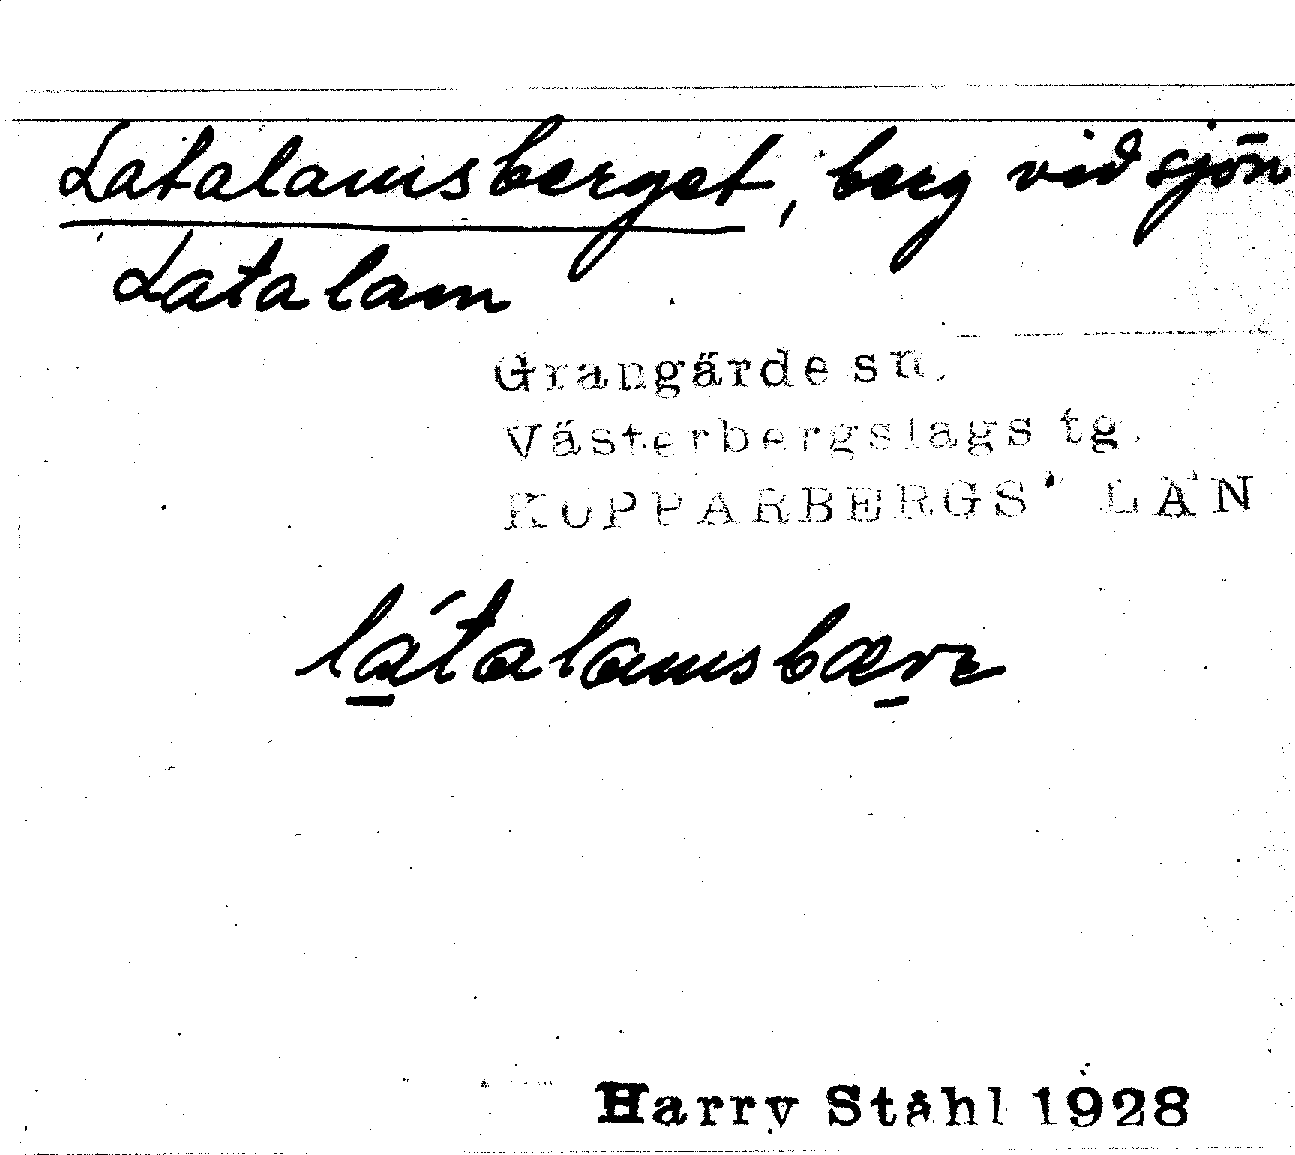 Latalamsberget, berg vid sjön
Latalam
Grangärde sn.
Västerbergslags tg.
KOPPARBERGS LÄN
látalamsbærε
Harry Ståhl 1928